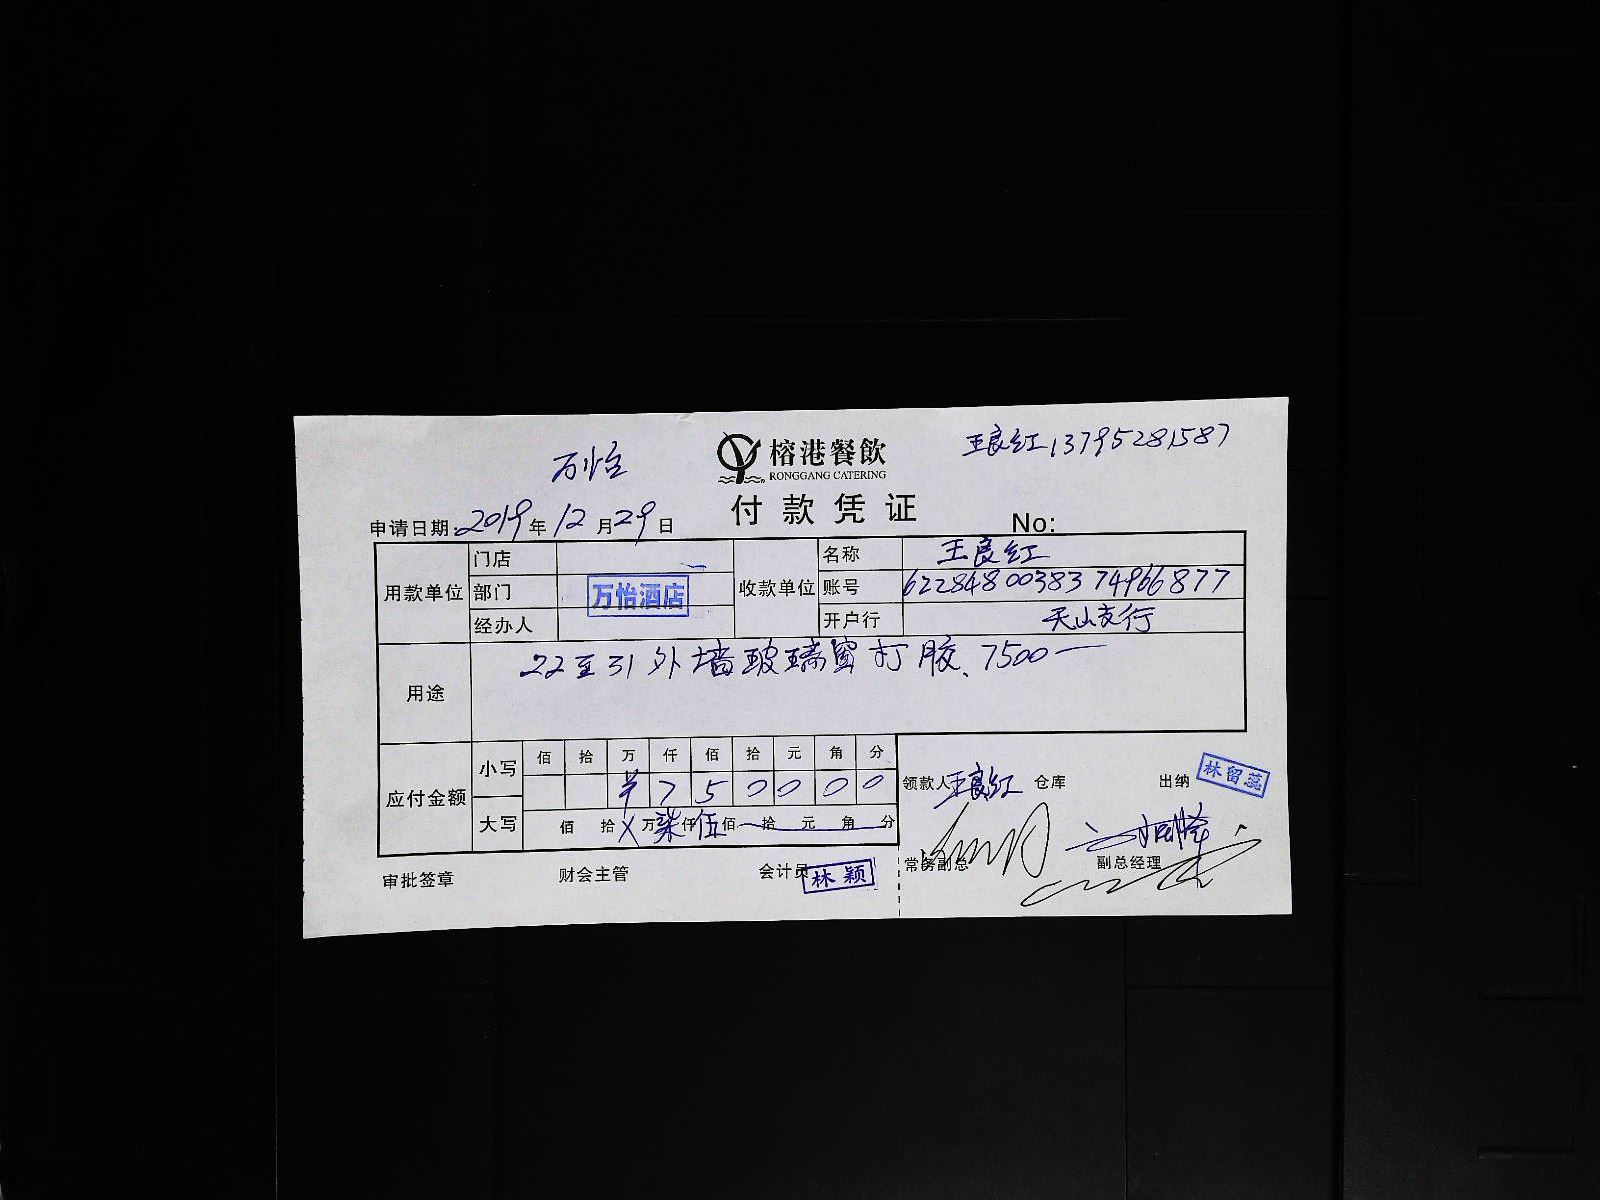 万怡
榕港餐飲
RONGGANG CATERING
王良红13795281587
付款凭证
申请日期:2019年12月29日
No:
用款单位 门店 收款单位 名称 王良红
部门 万怡酒店 账号 6228480038374966877
经办人 开户行 天山支行
用途 22至31外墙玻璃窗打胶、7500一
应付金额 小写 佰 拾 万 仟 佰 拾 元 角 分
¥ 7 5 0 0 0 0
大写 佰 拾 X 万 柒 仟 伍 佰 拾 元 角 分
领款人 王良红 仓库 出纳 林留蕊
审批签章 财会主管 会计员 林颖 常务副总 副总经理